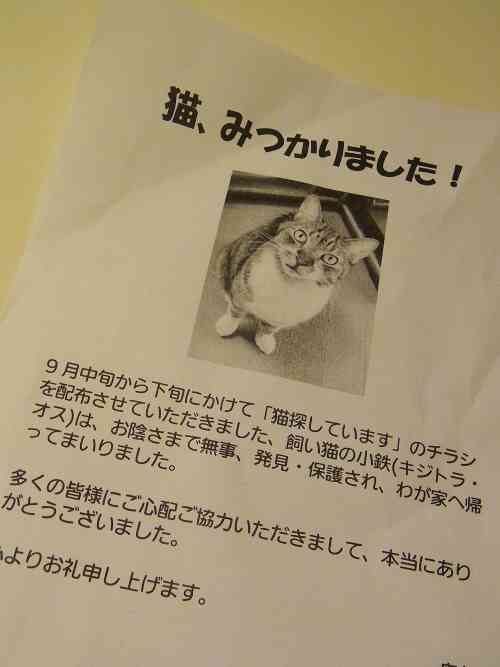 猫、みつかりました！
９月中旬から下旬にかけて「猫探しています」のチラシ
を配布させていただきました、飼い猫の小鉄(キジトラ・
オス)は、お陰さまで無事、発見・保護され、わが家へ帰
ってまいりました。
多くの皆様にご心配ご協力いただきまして、本当にあり
がとうございました。
よりお礼申し上げます。